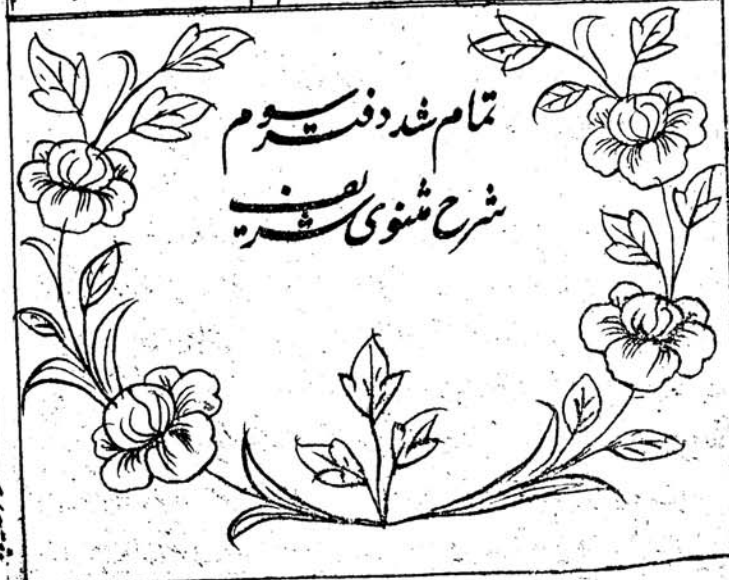 تمام شد دفتر سوم
شرح مثنوی شریف